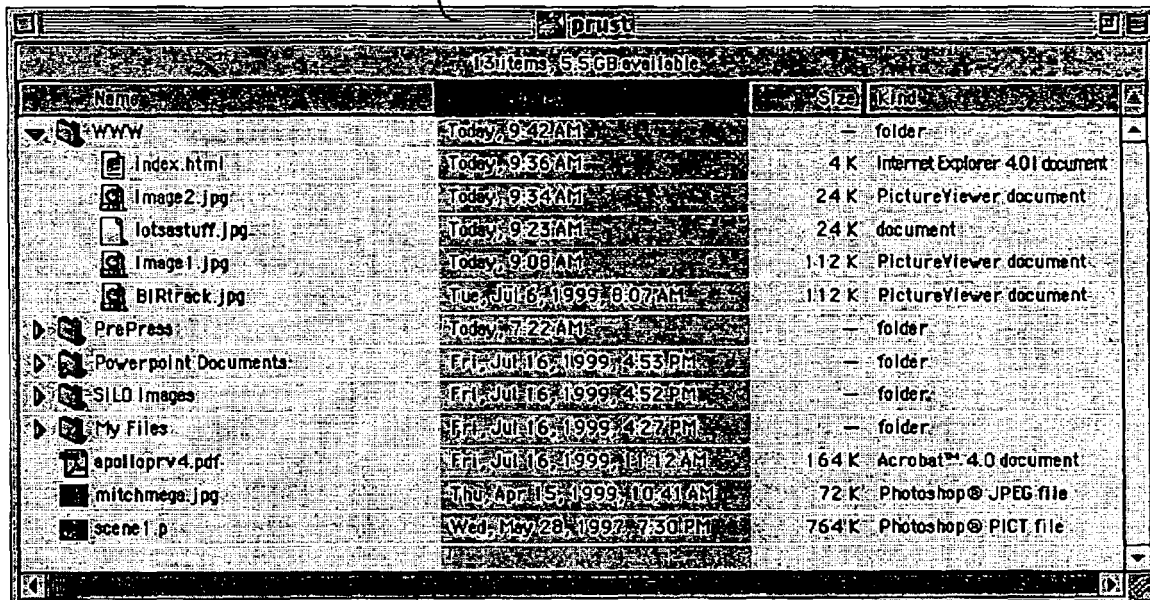 prust
13 items, 5.5 GB available
Name Size Kind
WWW Today, 9:42 AM — folder
index.html Today, 9:36 AM 4 K Internet Explorer 4.01 document
Image2.jpg Today, 9:34 AM 24 K PictureViewer document
lotsastuff.jpg Today, 9:23 AM 24 K document
Image1.jpg Today, 9:08 AM 112 K PictureViewer document
BIRtrack.jpg Tue, Jul 6, 1999, 8:07 AM 112 K PictureViewer document
PrePress Today, 7:22 AM — folder
Powerpoint Documents Fri, Jul 16, 1999, 4:53 PM — folder
SILO Images Fri, Jul 16, 1999, 4:52 PM — folder
My Files Fri, Jul 16, 1999, 4:27 PM — folder
apolloprv4.pdf Fri, Jul 16, 1999, 11:12 AM 164 K Acrobat™ 4.0 document
mitchmega.jpg Thu, Apr 15, 1999, 10:41 AM 72 K Photoshop® JPEG file
scene1.p Wed, May 28, 1997, 7:30 PM 764 K Photoshop® PICT file